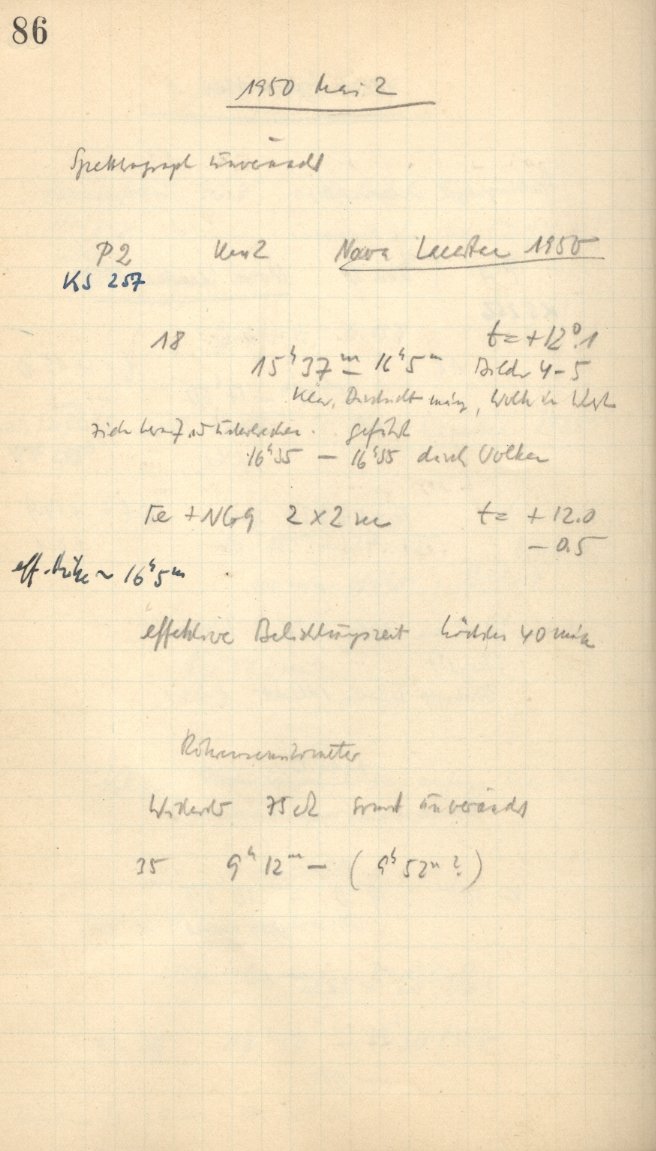 86
1950 Mai 2
Spektrograph unverändt
P2 Mai 2 Nova Lacertae 1950
KS 257
18 t = +12°.1
15ʰ37ᵐ – 16ʰ5ᵐ Bilder 4-5
Klar, Durchsicht mäßig, Wolken in West
geführt
16ʰ35 – 16ʰ55 durch Wolken
Fe + NGG 2 x 2 sec t = +12.0
– 0.5
eff. Mitte ~ 16ʰ5ᵐ
effektive Belichtungszeit höchstens 40 min
Röhrensensitometer
Widerst 75 Ω sonst unverändt
35 9ʰ12ᵐ – (9ʰ52ᵐ ?)